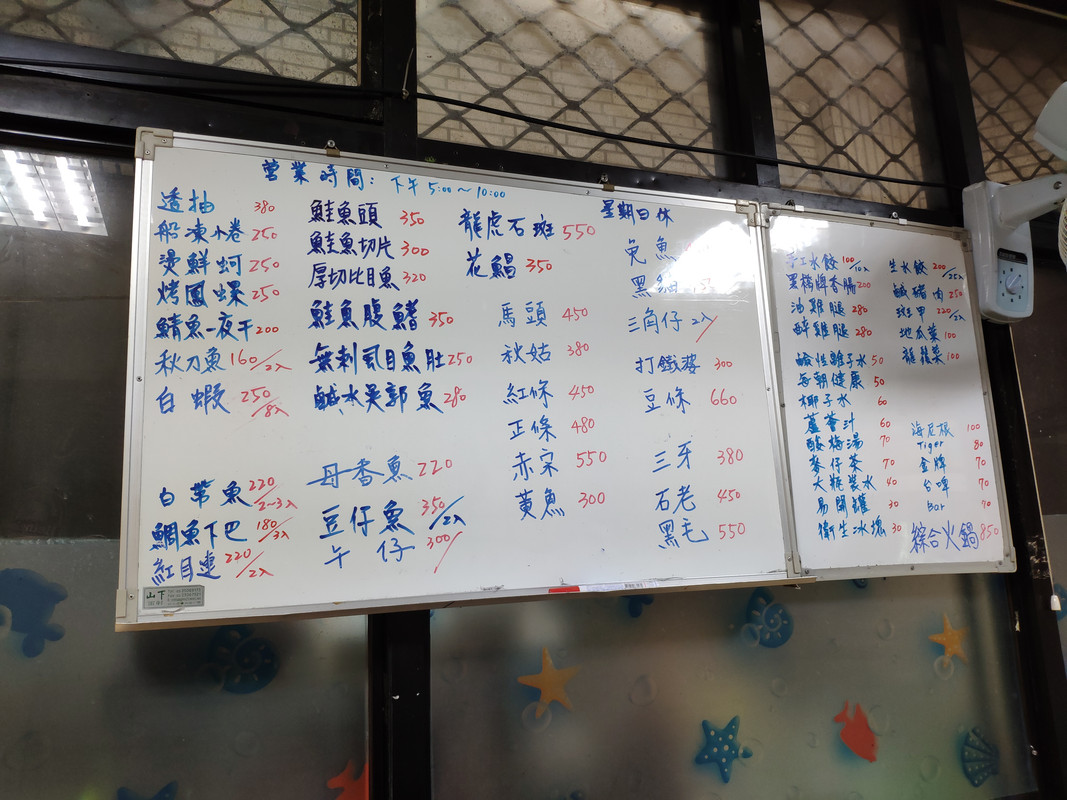 營業時間: 下午 5:00~10:00
星期日休
透抽 380
船凍小卷 250
燙鮮蚵 250
烤鳳螺 250
鯖魚一夜干 200
秋刀魚 160/2入
白蝦 250/8入
白帶魚 220/2~3入
鯛魚下巴 180/3入
紅目連 220/2入
鮭魚頭 350
鮭魚切片 300
厚切比目魚 320
鮭魚腹鰭 350
無刺虱目魚肚 250
鹹水吳郭魚 280
母香魚 220
豆仔魚 350/2入
午仔 300/
龍虎石斑 550
花鯧 350
馬頭 450
秋姑 380
紅條 450
正條 480
赤宗 550
黃魚 300
兔魚
黑
三角仔 2入/
打鐵婆 300
豆條 660
三牙 380
石老 450
黑毛 550
手工水餃 100/10入
黑橋牌香腸 200
油雞腿 280
醉雞腿 280
鹹性離子水 50
每朝健康 50
椰子水 60
蘆薈汁 60
酸梅湯 70
麥仔茶 70
大瓶裝水 40
易開罐 30
衛生冰塊 30
生水餃 200/25入
鹹豬肉 250
班甲 220/2入
地瓜葉 100
龍鬚菜 100
海尼根 100
Tiger 80
金牌 70
台啤 70
Bar 70
綜合火鍋 850
山下